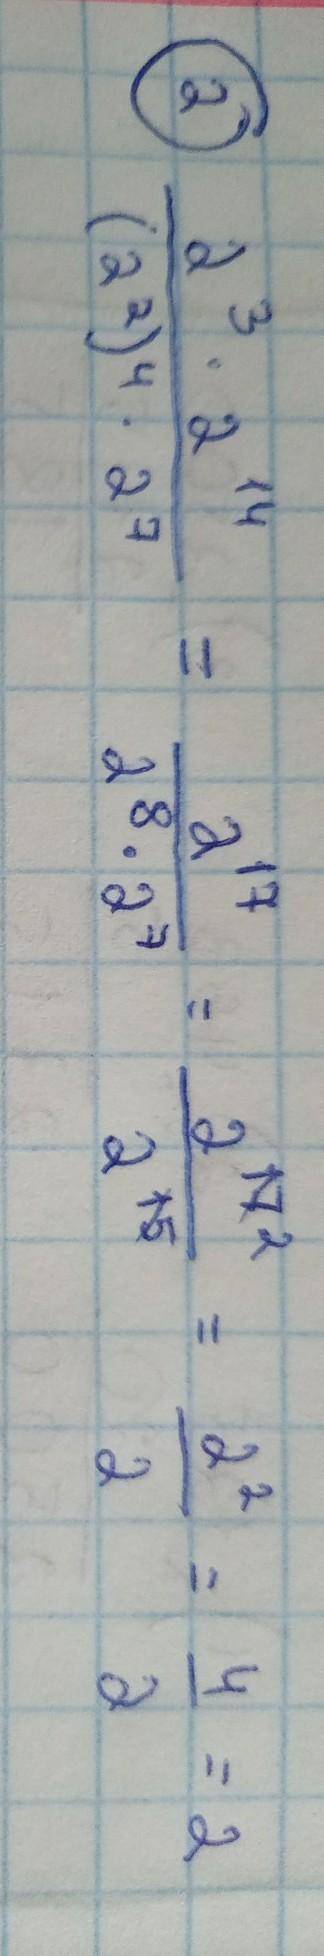 2
2³ · 2¹⁴ / (2²)⁴ · 2⁷ = 2¹⁷ / 2⁸ · 2⁷ = 2¹⁷ ² / 2¹⁵ = 2² / 2 = 4 / 2 = 2